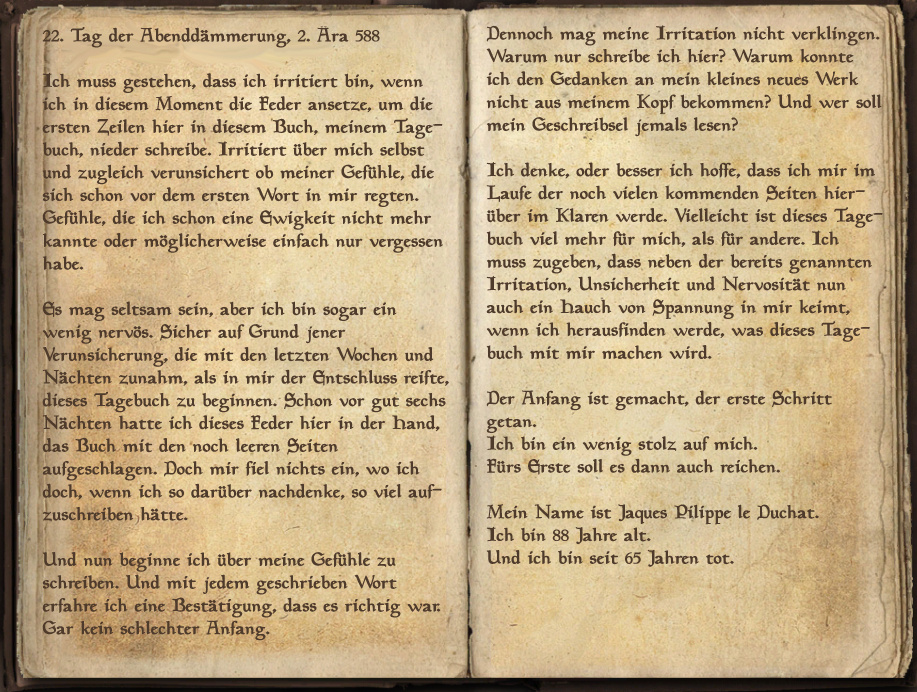 22. Tag der Abenddämmerung, 2. Ära 588
Ich muss gestehen, dass ich irritiert bin, wenn
ich in diesem Moment die Feder ansetze, um die
ersten Zeilen hier in diesem Buch, meinem Tage-
buch, nieder schreibe. Irritiert über mich selbst
und zugleich verunsichert ob meiner Gefühle, die
sich schon vor dem ersten Wort in mir regten.
Gefühle, die ich schon eine Ewigkeit nicht mehr
kannte oder möglicherweise einfach nur vergessen
habe.
Es mag seltsam sein, aber ich bin sogar ein
wenig nervös. Sicher auf Grund jener
Verunsicherung, die mit den letzten Wochen und
Nächten zunahm, als in mir der Entschluss reifte,
dieses Tagebuch zu beginnen. Schon vor gut sechs
Nächten hatte ich dieses Feder hier in der Hand,
das Buch mit den noch leeren Seiten
aufgeschlagen. Doch mir fiel nichts ein, wo ich
doch, wenn ich so darüber nachdenke, so viel auf-
zuschreiben hätte.
Und nun beginne ich über meine Gefühle zu
schreiben. Und mit jedem geschrieben Wort
erfahre ich eine Bestätigung, dass es richtig war.
Gar kein schlechter Anfang.
Dennoch mag meine Irritation nicht verklingen.
Warum nur schreibe ich hier? Warum konnte
ich den Gedanken an mein kleines neues Werk
nicht aus meinem Kopf bekommen? Und wer soll
mein Geschreibsel jemals lesen?
Ich denke, oder besser ich hoffe, dass ich mir im
Laufe der noch vielen kommenden Seiten hier-
über im Klaren werde. Vielleicht ist dieses Tage-
buch viel mehr für mich, als für andere. Ich
muss zugeben, dass neben der bereits genannten
Irritation, Unsicherheit und Nervosität nun
auch ein Hauch von Spannung in mir keimt,
wenn ich herausfinden werde, was dieses Tage-
buch mit mir machen wird.
Der Anfang ist gemacht, der erste Schritt
getan.
Ich bin ein wenig stolz auf mich.
Fürs Erste soll es dann auch reichen.
Mein Name ist Jaques Pilippe le Duchat.
Ich bin 88 Jahre alt.
Und ich bin seit 65 Jahren tot.